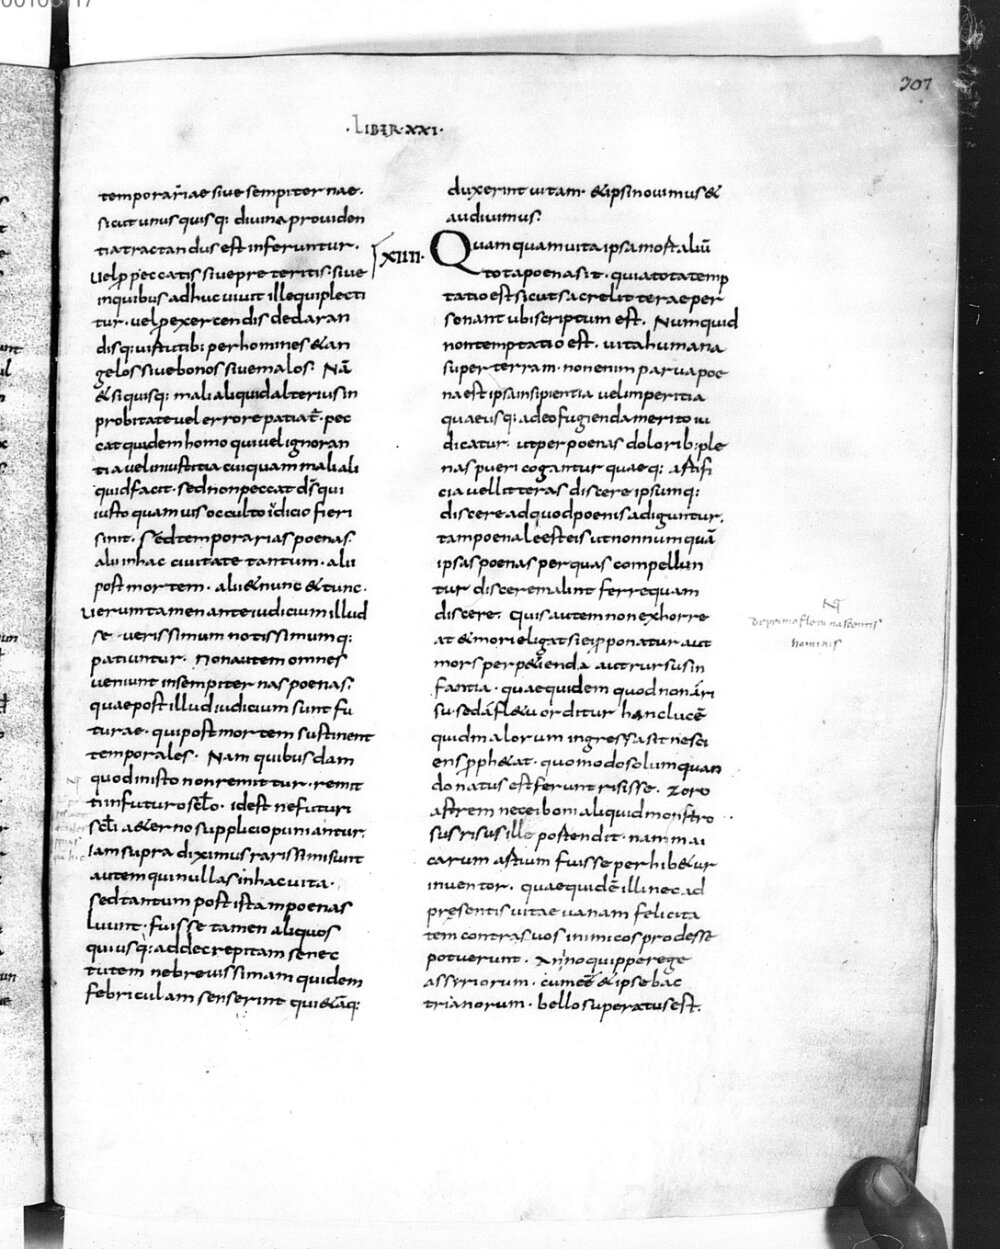 307
·LIBER·XXI·
temporariae siue sempiternae.
sicut unusquisq: diuina prouiden
tia tractandus est inferuntur.
uel p peccatis siue preteritis. siue
inquibus adhuc uiuit ille qui plecti
tur. uel p exercendis declaran
disq: uirtutib: per homines & an
gelos siue bonos siue malos. Nā
& si quisq: mali aliquid alterius in
probitate uel errore patiat̄. pec
cat quidem homo qui uel ignoran
tia uel iniustitia cuiquam mali ali
quid facit. sed non peccat d̄s qui
iusto quamuis occulto iudicio fieri
sinit. Sed temporarias poenas.
alii inhac ciuitate tantum. alii
post mortem. alii & nunc & tunc.
uerumtamen ante iudicium illud
se uerissimum notissimumq:
patiuntur. Non autem omnes
ueniunt insempiternas poenas.
quae post illud iudicium sunt fu
turae. qui post mortem sustinent
temporales. Nam quibusdam
quod inisto non remittitur. remit
ti infuturo sc̄lo. id est ne futuri
sc̄li aeterno supplicio puniantur.
Iam supra diximus rarissimi sunt
autem qui nullas inhac uita.
sed tantum post istam poenas
luunt. fuisse tamen aliquos
qui usq: ad decrepitam senec
tutem ne breuissimam quidem
febriculam senserint qui & āq:
duxerint uitam & ipsi nouimus &
audiuimus.
XIIII. Quamquam uita ipsa mortaliū
tota poena sit. quia tota temp
tatio est sicut sacrae litterae per
sonant ubi scriptum est. Numquid
non temptatio est. uita humana
super terram. non enim parua poe
na est ipsa insipientia uel imperitia
quae usq: adeo fugienda merito iu
dicatur. ut per poenas dolorib: ple
nas pueri cogantur quaeq: artifi
cia uel litteras discere ipsumq:
discere ad quod poenis adiguntur.
tam poenale est eis ut nonnumquā
ipsas poenas per quas compellun
tur discere malint ferre quam
discere. Quis autem non exhorre
at & mori eligat si ei p ponatur aut
mors perp&ienda aut rursus in
fantia. quae quidem quod non a ri
su. sed a fl&u orditur hanc lucē
quid malorum ingressa sit nesci
ens p ph&at. quomodo solum quan
do natus est ferunt risisse. Zoro
astrem nec ei boni aliquid monstro
sus risus ille portendit. nam mai
carum artium fuisse perhib&ur
inuentor. quae quidē illi nec ad
presentis uitae uanam felicita
tem contra suos inimicos prodesse
potuerunt. A nino quippe rege
assyriorum. cum ess& & ipse bac
trianorum. bello superatus est.
De primo fletu nascentis
hominis